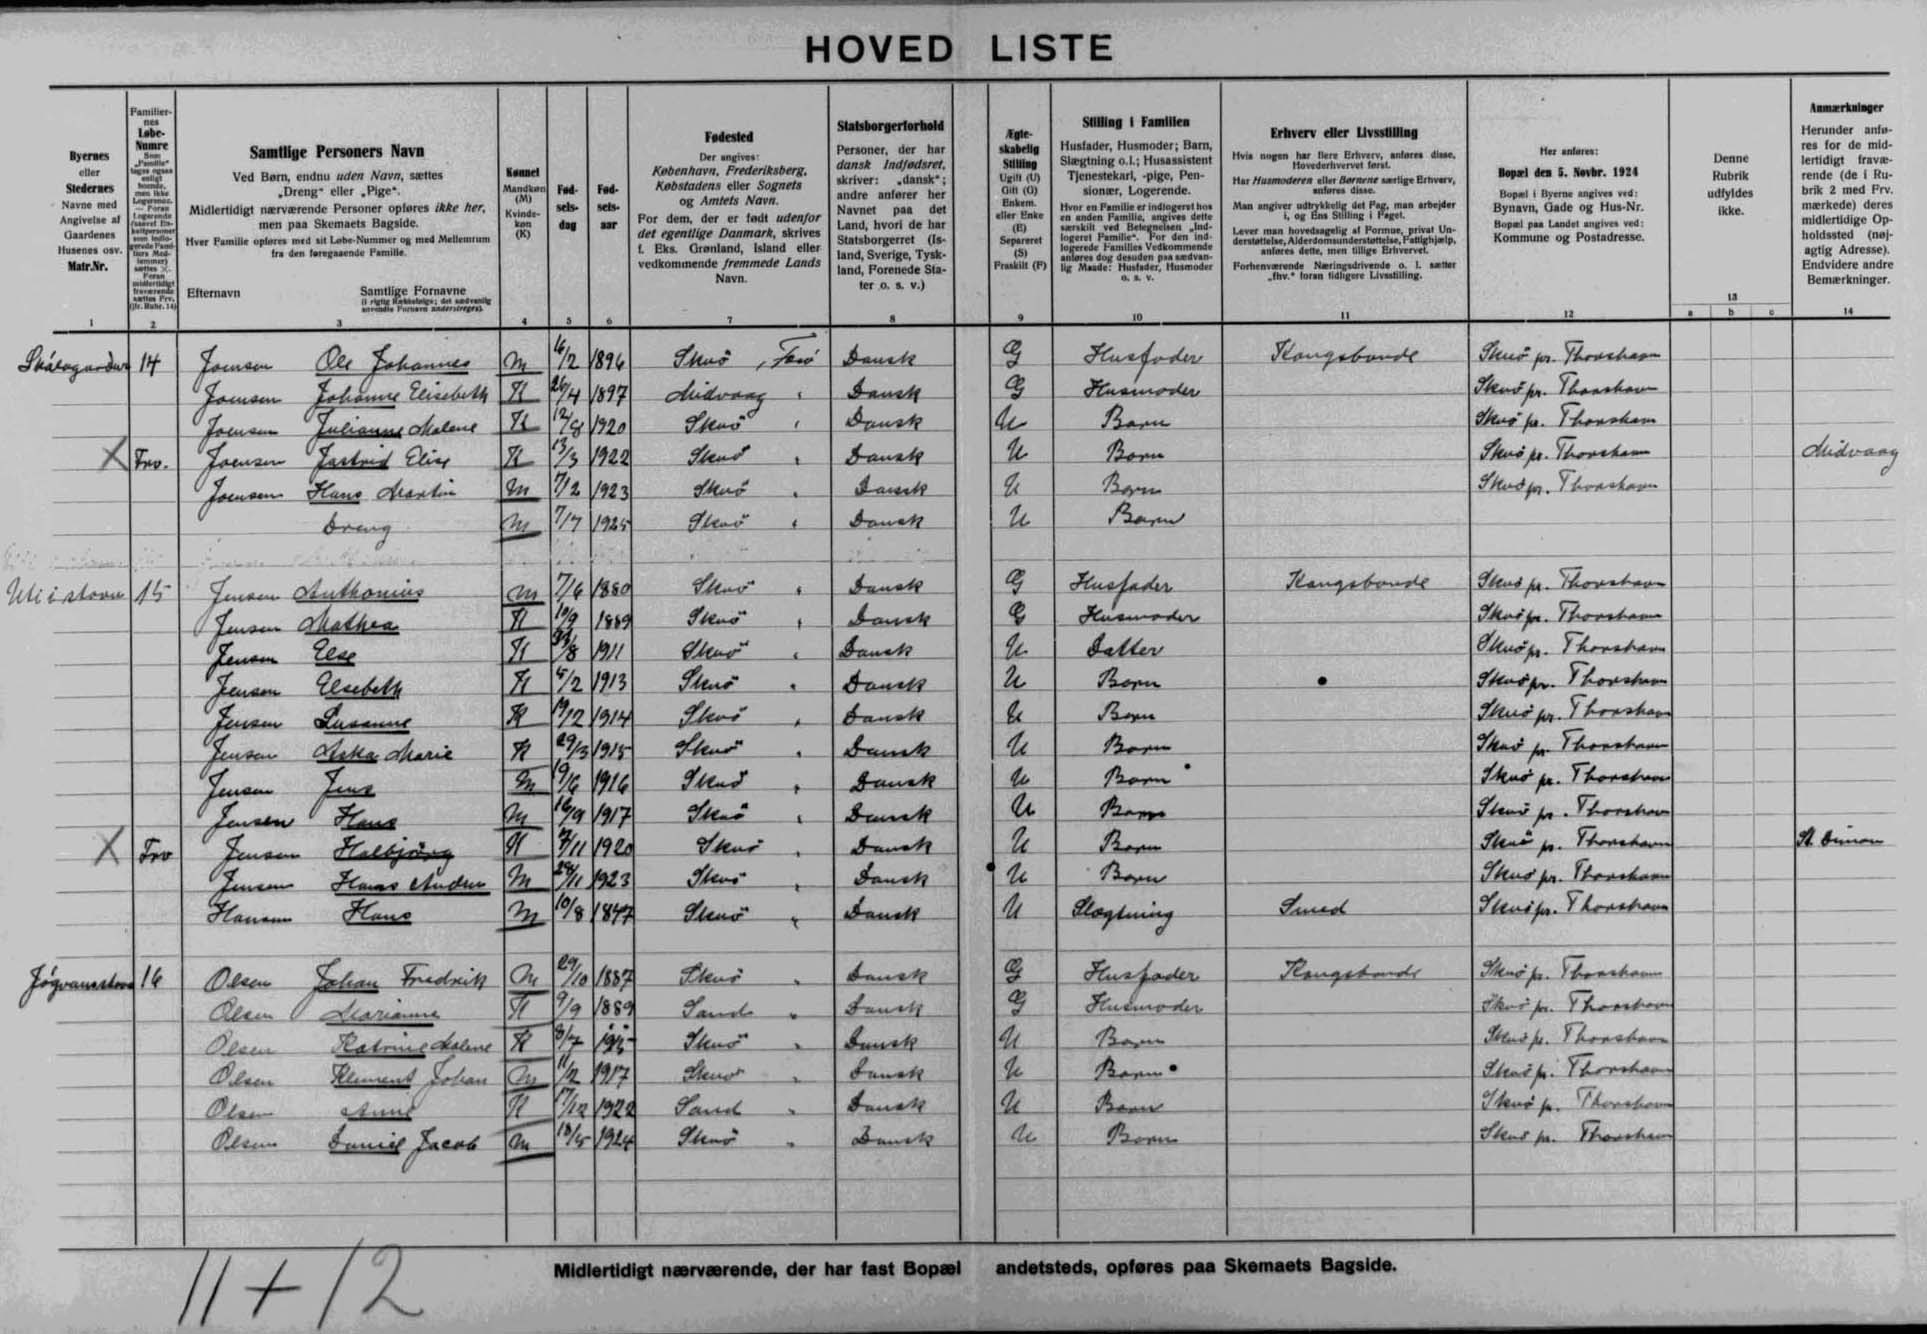 HOVED LISTE
Byernes
eller
Stedernes
Navne med
Angivelse af
Gaardenes
Husenes osv.
Matr.Nr.
1
Familier-
nes
Løbe-
Numre
2
Samtlige Personers Navn
Ved Børn, endnu uden Navn, sættes
„Dreng" eller „Pige".
Midlertidigt nærværende Personer opføres ikke her,
men paa Skemaets Bagside.
Hver Familie opføres med sit Løbe-Nummer og med Mellemrum
fra den foregaaende Familie.
Efternavn Samtlige Fornavne
(i rigtig Rækkefølge; det sædvanlig
anvendte Fornavn understreges).
3
Kønnet
Mandkøn
(M)
Kvinde-
køn
(K)
4
Fød-
sels-
dag
5
Fød-
sels-
aar
6
Fødested
Der angives:
København, Frederiksberg,
Købstadens eller Sognets
og Amtets Navn.
For dem, der er født udenfor
det egentlige Danmark, skrives
f. Eks. Grønland, Island eller
vedkommende fremmede Lands
Navn.
7
Statsborgerforhold
Personer, der har
dansk Indfødsret,
skriver: „dansk";
andre anfører her
Navnet paa det
Land, hvori de har
Statsborgerret (Is-
land, Sverige, Tysk-
land, Forenede Sta-
ter o. s. v.)
8
Ægte-
skabelig
Stilling
Ugift (U)
Gift (G)
Enkem.
eller Enke
(E)
Separeret
(S)
Fraskilt (F)
9
Stilling i Familien
Husfader, Husmoder; Barn,
Slægtning o.l.; Husassistent
Tjenestekarl, -pige, Pen-
sionær, Logerende.
Hvor en Familie er indlogeret hos
en anden Familie, angives dette
særskilt ved Betegnelsen „Ind-
logeret Familie". For den ind-
logerede Familles Vedkommende
anføres dog desuden paa sædvan-
lig Maade: Husfader, Husmoder
o. s. v.
10
Erhverv eller Livsstilling
Hvis nogen har flere Erhverv, anføres disse,
Hovederhvervet først.
Har Husmoderen eller Børnene særlige Erhverv,
anføres disse.
Man angiver udtrykkelig det Fag, man arbejder
i, og Ens Stilling i Faget.
Lever man hovedsagelig af Formue, privat Un-
derstøttelse, Alderdomsunderstøttelse, Fattighjælp,
anføres dette, men tillige Erhvervet.
Forhenværende Næringsdrivende o. l. sætter
„fhv." foran tidligere Livsstilling.
11
Her anføres:
Bopæl den 5. Novbr. 1924
Bopæl i Byerne angives ved:
Bynavn, Gade og Hus-Nr.
Bopæl paa Landet angives ved:
Kommune og Postadresse.
12
Denne
Rubrik
udfyldes
ikke.
13
a b c
Anmærkninger
Herunder anfø-
res for de mid-
lertidigt fravæ-
rende (de i Ru-
brik 2 med Frv.
mærkede) deres
midlertidige Op-
holdssted (nøj-
agtig Adresse).
Endvidere andre
Bemærkninger.
14
14 Joensen Ole Johannes M 16/2 1896 Skuö, Færö Dansk G Husfader Kongsbonde Skuö pr. Thorshavn
Joensen Johanne Elisebeth K 26/4 1897 Midvaag " Dansk G Husmoder Skuö pr. Thorshavn
Joensen Julianne Malene K 12/8 1920 Skuö " Dansk U Barn Skuö pr. Thorshavn
X Frv. Joensen Jastrid Elise K 13/3 1922 Skuö " Dansk U Barn Skuö pr. Thorshavn Midvaag
Joensen Hans Martin M 7/12 1923 Skuö " Dansk U Barn Skuö pr. Thorshavn
Dreng M 7/7 1925 Skuö " Dansk U Barn
Uti i stovu 15 Jensen Anthonius M 7/6 1880 Skuö " Dansk G Husfader Kongsbonde Skuö pr. Thorshavn
Jensen Mathea K 10/9 1889 Skuö " Dansk G Husmoder Skuö pr. Thorshavn
Jensen Else K 1911 Skuö " Dansk U Datter Skuö pr. Thorshavn
Jensen Elsebeth K 5/2 1913 Skuö " Dansk U Barn Skuö pr. Thorshavn
Jensen Susanne K 19/12 1914 Skuö " Dansk U Barn Skuö pr. Thorshavn
Jensen Aska Marie K 29/3 1915 Skuö " Dansk U Barn Skuö pr. Thorshavn
Jensen Jens M 19/6 1916 Skuö " Dansk U Barn Skuö pr. Thorshavn
Jensen Hans M 16/9 1917 Skuö " Dansk U Barn Skuö pr. Thorshavn
X Frv Jensen Halbjörg K 7/11 1920 Skuö " Dansk U Barn Skuö pr. Thorshavn St. Dimon
Jensen Hans Andreu M 24/11 1923 Skuö " Dansk U Barn Skuö pr. Thorshavn
Hansen Hans M 10/8 1847 Skuö " Dansk U Slægtning Smed Skuö pr. Thorshavn
Jógvansstova 16 Olsen Johan Fredrik M 29/10 1887 Skuö " Dansk G Husfader Kongsbonde Skuö pr. Thorshavn
Olsen Marianne K 9/9 1889 Sand " Dansk G Husmoder Skuö pr. Thorshavn
Olsen Katrine Malene K 8/7 1915 Skuö " Dansk U Barn Skuö pr. Thorshavn
Olsen Klement Johan M 11/2 1917 Skuö " Dansk U Barn Skuö pr. Thorshavn
Olsen Anne K 17/12 1922 Sand " Dansk U Barn Skuö pr. Thorshavn
Olsen Daniel Jacob M 18/5 1924 Skuö " Dansk U Barn Skuö pr. Thorshavn
Midlertidigt nærværende, der har fast Bopæl andetsteds, opføres paa Skemaets Bagside.
11 + 12